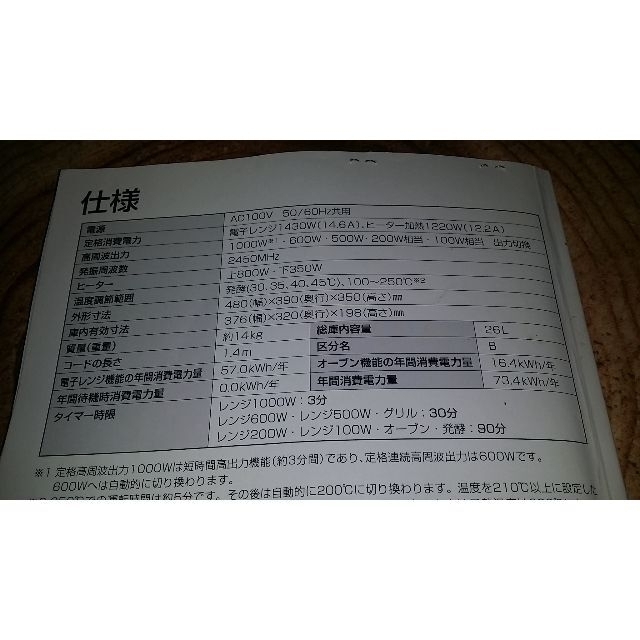 仕様
電源 AC100V 50/60Hz共用
定格消費電力 電子レンジ1430W(14.6A)、ヒーター加熱1220W(12.2A)
高周波出力 1000W※1・600W・500W・200W相当・100W相当 出力切換
発振周波数 2450MHz
ヒーター 上800W・下350W
温度調節範囲 発酵(30、35、40、45℃)、100~250℃※2
外形寸法 480(幅)×390(奥行)×350(高さ)mm
庫内有効寸法 376(幅)×320(奥行)×198(高さ)mm
質量(重量) 約14kg 総庫内容量 26L
コードの長さ 1.4m 区分名 B
電子レンジ機能の年間消費電力量 57.0kWh/年 オーブン機能の年間消費電力量 16.4kWh/年
年間待機時消費電力量 0.0kWh/年 年間消費電力量 73.4kWh/年
タイマー時限 レンジ1000W:3分
レンジ600W・レンジ500W・グリル:30分
レンジ200W・レンジ100W・オーブン・発酵:90分
※1 定格高周波出力1000Wは短時間高出力機能(約3分間)であり、定格連続高周波出力は600Wです。
600Wへは自動的に切り換わります。
の運転時間は約5分です。その後は自動的に200℃に切り換わります。温度を210℃以上に設定した